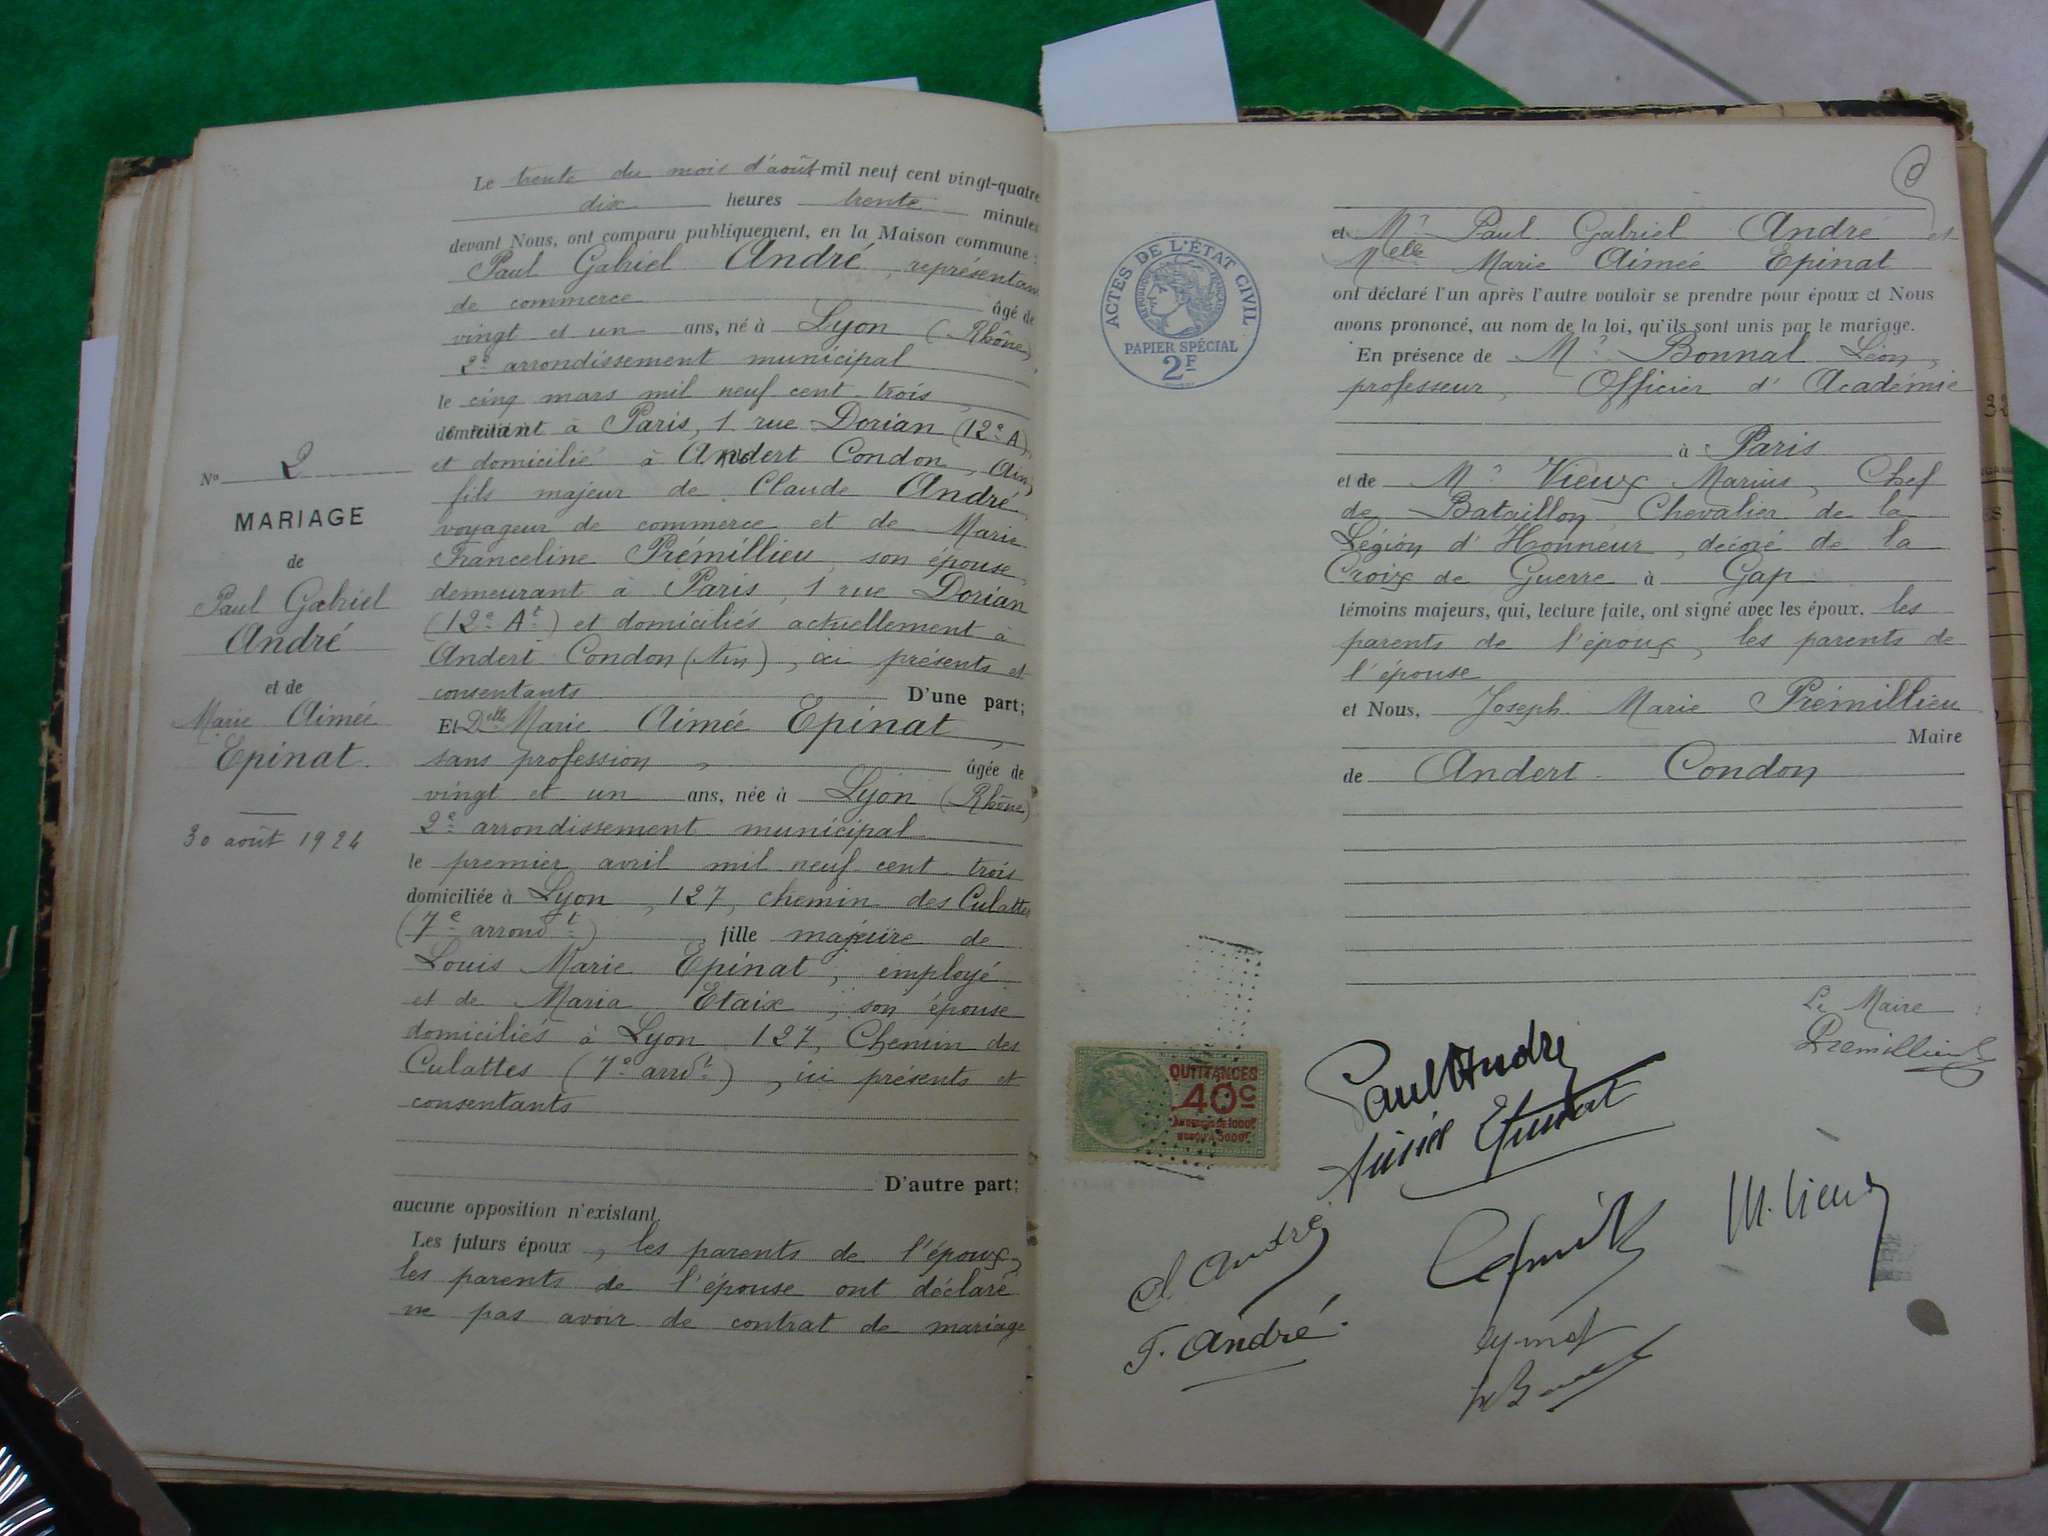 Le trente du mois d'août mil neuf cent vingt-quatre
dix heures trente minutes
devant Nous, ont comparu publiquement, en la Maison commune :
Paul Gabriel André, représentant
de commerce âgé de
vingt et un ans, né à Lyon (Rhône),
2e arrondissement municipal
le cinq mars mil neuf cent trois,
à Paris, 1 rue Dorian (12e A)
et domicilié à Andert Condon, Ain,
fils majeur de Claude André
voyageur de commerce et de Marie
Franceline Prémillieu, son épouse,
demeurant à Paris, 1 rue Dorian
(12e At) et domiciliés actuellement à
Andert Condon (Ain), ici présents et
consentants D'une part;
Et Delle Marie Aimée Epinat,
sans profession, âgée de
vingt et un ans, née à Lyon (Rhône)
2e arrondissement municipal
le premier avril mil neuf cent trois
domiciliée à Lyon, 127, chemin des Culattes
(7e arrondt), fille majeure de
Louis Marie Epinat, employé
et de Maria Etaix, son épouse
domiciliés à Lyon 127, Chemin des
Culattes (7e arrdt), ici présents et
consentants
D'autre part;
aucune opposition n'existant
Les futurs époux, les parents de l'époux,
les parents de l'épouse ont déclaré
ne pas avoir de contrat de mariage
No 2
MARIAGE
de
Paul Gabriel
André
et de
Marie Aimée
Epinat.
30 août 1924
et Mr Paul Gabriel André et
Melle Marie Aimée Epinat
ont déclaré l'un après l'autre vouloir se prendre pour époux et Nous
avons prononcé, au nom de la loi, qu'ils sont unis par le mariage.
En présence de Mr Bonnal Léon,
professeur, Officier d'Académie
à Paris
et de Mr Vieux Marius, Chef
de Bataillon, Chevalier de la
Légion d'Honneur, décoré de la
Croix de Guerre à Gap
témoins majeurs, qui, lecture faite, ont signé avec les époux, les
parents de l'époux, les parents de
l'épouse
et Nous, Joseph Marie Prémillieu
Maire
de Andert-Condon
ACTES DE L'ÉTAT CIVIL
RÉPUBLIQUE FRANÇAISE
PAPIER SPÉCIAL
2F
Le Maire :
Prémillieu
QUITTANCES
40c
Paul André
Aimée Epinat
C. André
F. André.
M. Vieux